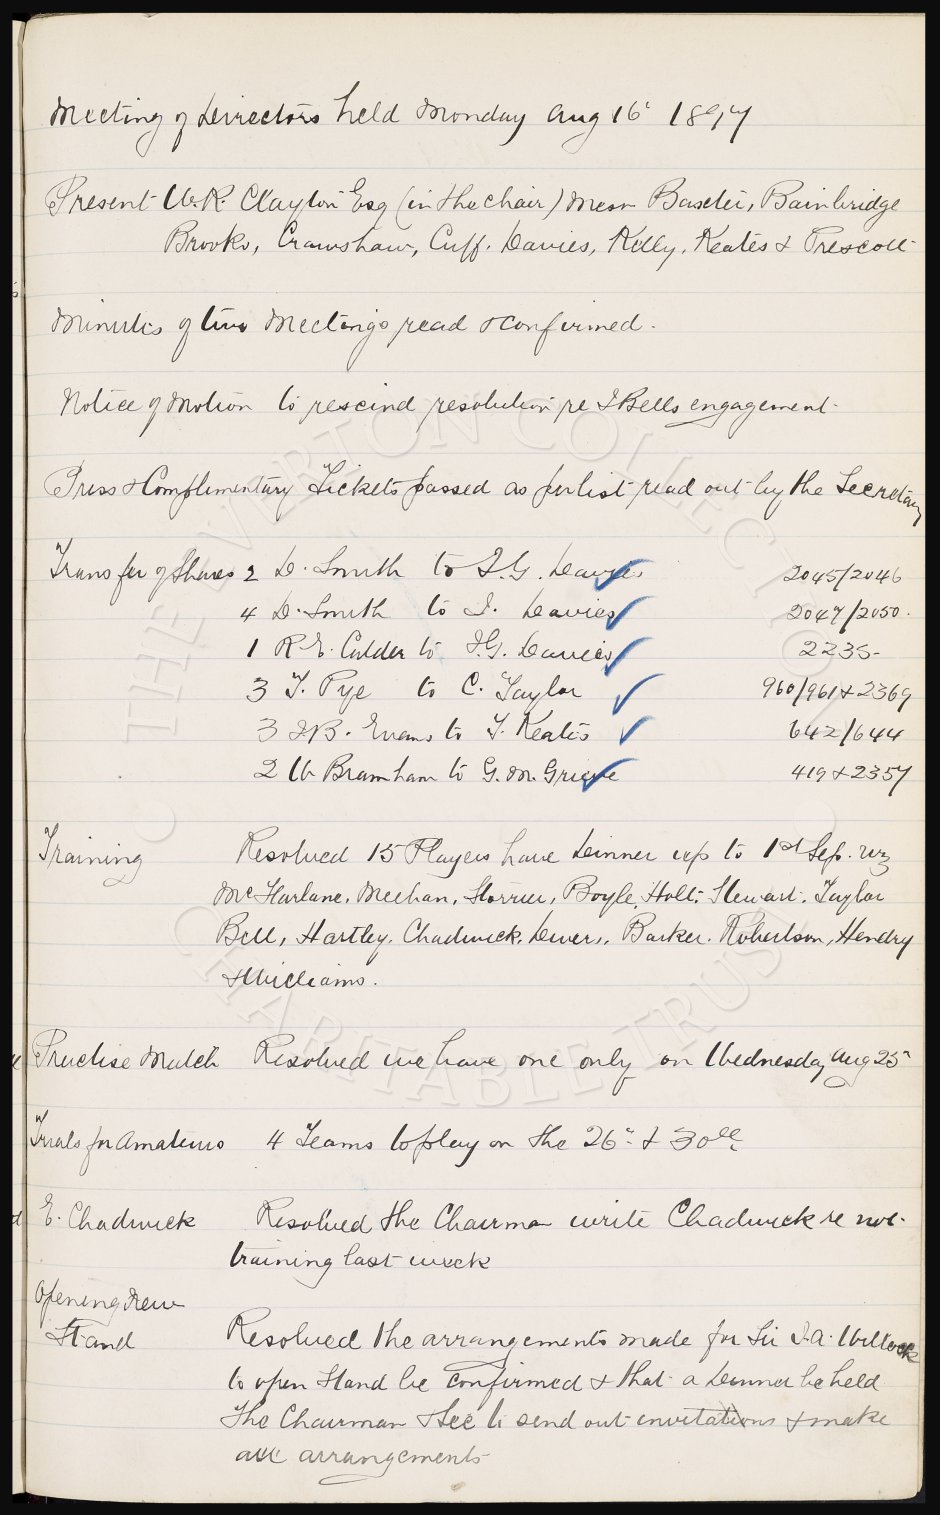 Meeting of Directors held Monday Aug 16th 1897
Present W.R. Clayton Esq (in the chair) Messrs Baxter, Bainbridge
Brooks, Crawshaw, Cuff. Davies, Kelly, Keates & Prescott
Minutes of two Meetings read & confirmed.
Notice of Motion to rescind resolution re J Bells engagement.
Press & Complimentary Tickets passed as per list read out by the Secretary
Transfer of Shares 2 D. Smith to J.G. Davies 2045/2046
4 D. Smith to J. Davies 2047/2050.
1 R.E. Calder to J.G. Davies 2235
3 T. Pye to C. Taylor 960/961 & 2369
3 J.B. Evans to T. Keates 642/644
2 W Bramham to G. M. Grieve 419 & 2357
Training Resolved 15 Players have Dinner up to 1st Sep. viz
McFarlane, Meehan, Storrier, Boyle, Holt, Stewart, Taylor
Bell, Hartley, Chadwick, Divers, Barker. Robertson, Hendry
& Williams.
Practise Match Resolved we have one only on Wednesday Aug 25th
Trials for Amateurs 4 Teams to play on the 26th & 30th
E. Chadwick Resolved the Chairman write Chadwick re not
training last week
Opening New
Stand Resolved the arrangements made for Sir J.A. Willock
to open Stand be confirmed & that a Dinner be held
The Chairman & Sec to send out invitations & make
all arrangements
THE EVERTON COLLECTION
CHARITABLE TRUST